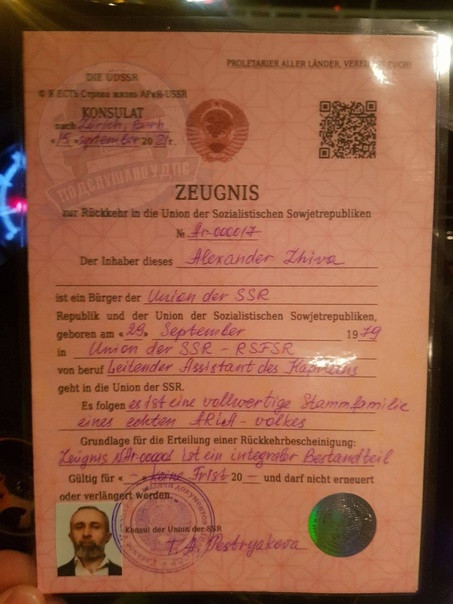 PROLETARIER ALLER LÄNDER, VEREINIGT EUCH!
DIE UDSSR
© Я ЕСТЬ Страна жизнь АРиЯ-USSR
KONSULAT
nach Zürich, Bern
«15» September 2021 г.
ПОДСЛУШАНО У ДПС
ZEUGNIS
zur Rückkehr in die Union der Sozialistischen Sowjetrepubliken
№ Ar-000017
Der Inhaber dieses Alexander Zhiva
ist ein Bürger der Union der SSR
Republik und der Union der Sozialistischen Sowjetrepubliken,
geboren am «29» September 1979
in Union der SSR - RSFSR
von beruf Leitender Assistant des Kapitäns
geht in die Union der SSR.
Es folgen es ist eine vollwertige Stammfamilie
eines echten ARiA - volkes
Grundlage für die Erteilung einer Rückkehrbescheinigung:
Zeugnis NAr000001 ist ein integraler Bestandteil
Gültig für «-» keine Frist 20 — und darf nicht erneuert
oder verlängert werden.
Konsul der Union der SSR
T. A. Pestryakova